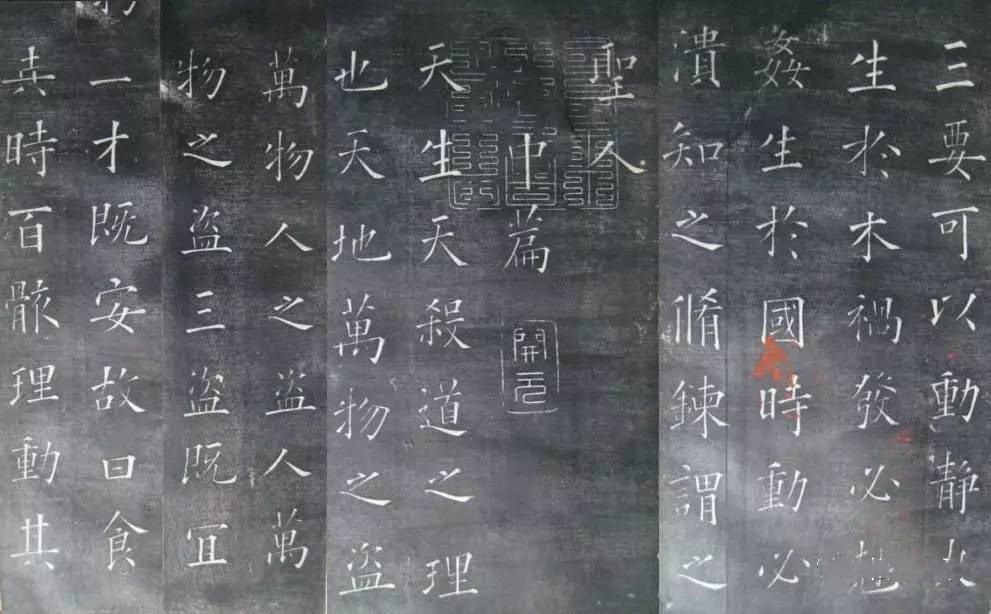 三要可以動靜火
生於木禍發必
姦生於國時動必
潰知之脩鍊謂之
聖人
中篇
開元
天生天殺道之理
也天地萬物之盜
萬物人之盜人萬
物之盜三盜既宜
一才既安故曰食
其時百骸理動其